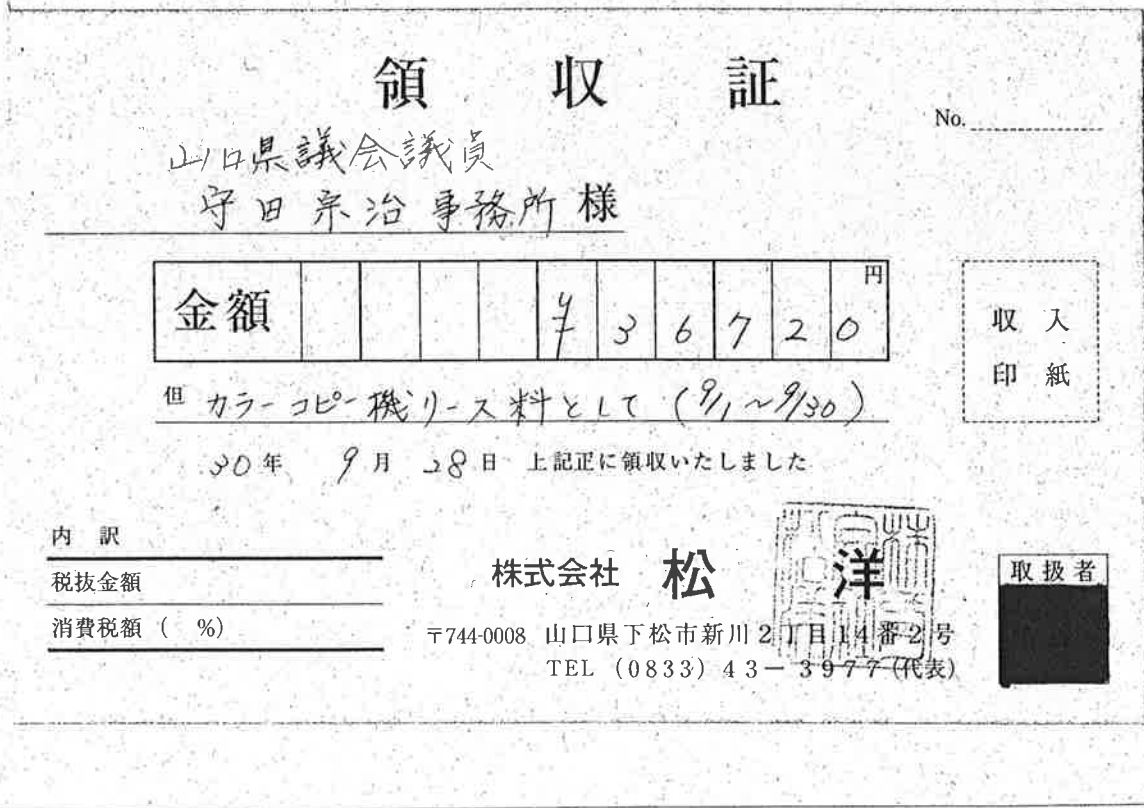 領収証
No.
山口県議会議員
守田宗治事務所 様
金額 ¥36720円
収入
印紙
但 カラーコピー機リース料として (9/1~9/30)
30年 9月 28日 上記正に領収いたしました
内訳
税抜金額
消費税額 ( %)
株式会社 松洋
〒744-0008 山口県下松市新川2丁目14番2号
TEL (0833) 43-3977(代表)
取扱者